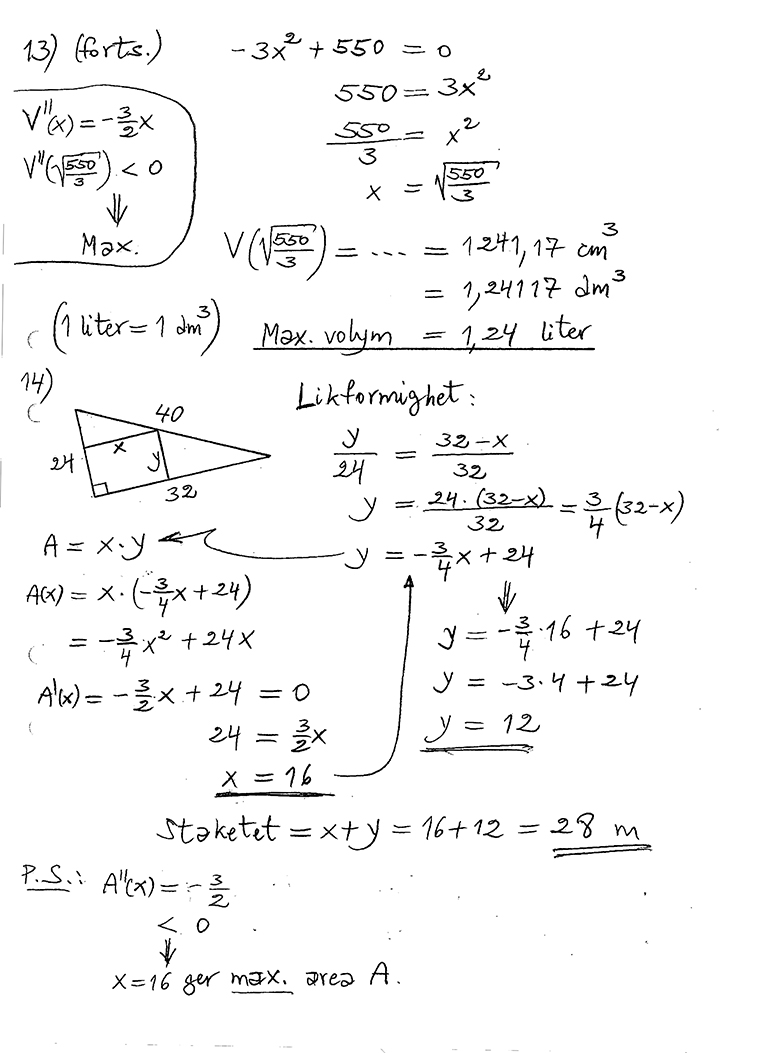 13) (forts.)
-3x² + 550 = 0
550 = 3x²
550/3 = x²
x = √(550/3)
V''(x) = -3/2 x
V''(√(550/3)) < 0
⇓
Max.
V(√(550/3)) = ... = 1241,17 cm³
= 1,24117 dm³
(1 liter = 1 dm³)
Max. volym = 1,24 liter
14)
40
x
24
y
32
Likformighet:
y/24 = (32-x)/32
y = 24·(32-x)/32 = 3/4 (32-x)
y = -3/4 x + 24
A = x·y
A(x) = x·(-3/4 x + 24)
= -3/4 x² + 24x
A'(x) = -3/2 x + 24 = 0
24 = 3/2 x
x = 16
⇓
y = -3/4 · 16 + 24
y = -3·4 + 24
y = 12
Staketet = x+y = 16+12 = 28 m
P.S.: A''(x) = -3/2
< 0
⇓
x=16 ger max. area A.